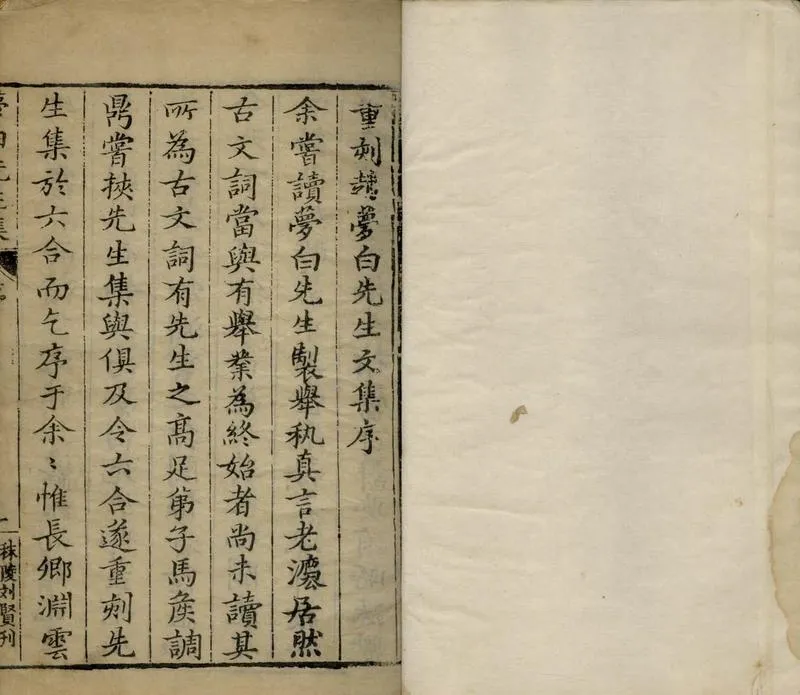 重刻趙夢白先生文集序
余嘗讀夢白先生製舉秇真言老瀠居然
古文詞當與有舉業為終始者尚未讀其
所為古文詞有先生之高足弟子馬矦調
鼎嘗挾先生集與俱及令六合遂重刻先
生集於六合而乞序于余〻惟長卿淵雲
夢白先生集
序
一
秣陵刘賢刊